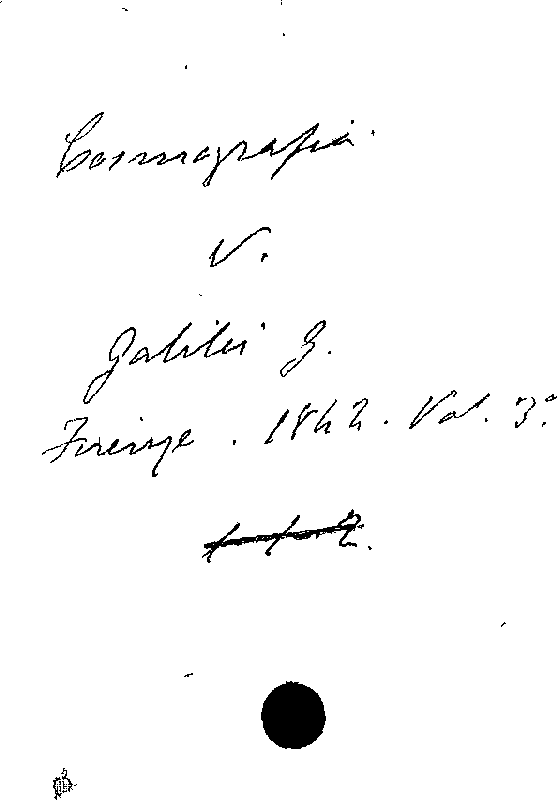 Cosmografia.
V.
Galilei G.
Firenze. 1842. Vol. 3°.